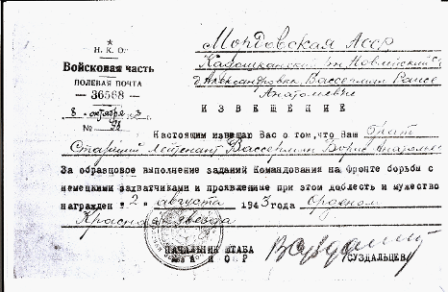 Н. К. О.
Войсковая часть
ПОЛЕВАЯ ПОЧТА
— 36568 —
8 - октября
№ 96
Мордовская Асср
д. Александровка, Вассерман Раисе
Анатольевне
ИЗВЕЩЕНИЕ
Настоящим извещаю Вас о том, что Ваш брат
Старший Лейтенант Вассерман Борис
За образцовое выполнение заданий Командования на Фронте борьбы с
немецкими захватчиками и проявление при этом доблесть и мужество
награжден "2" августа 1943 года орденом
Красная звезда
НАЧАЛЬНИК ШТАБА
МАЙОР
СУЗДАЛЬЦЕВ